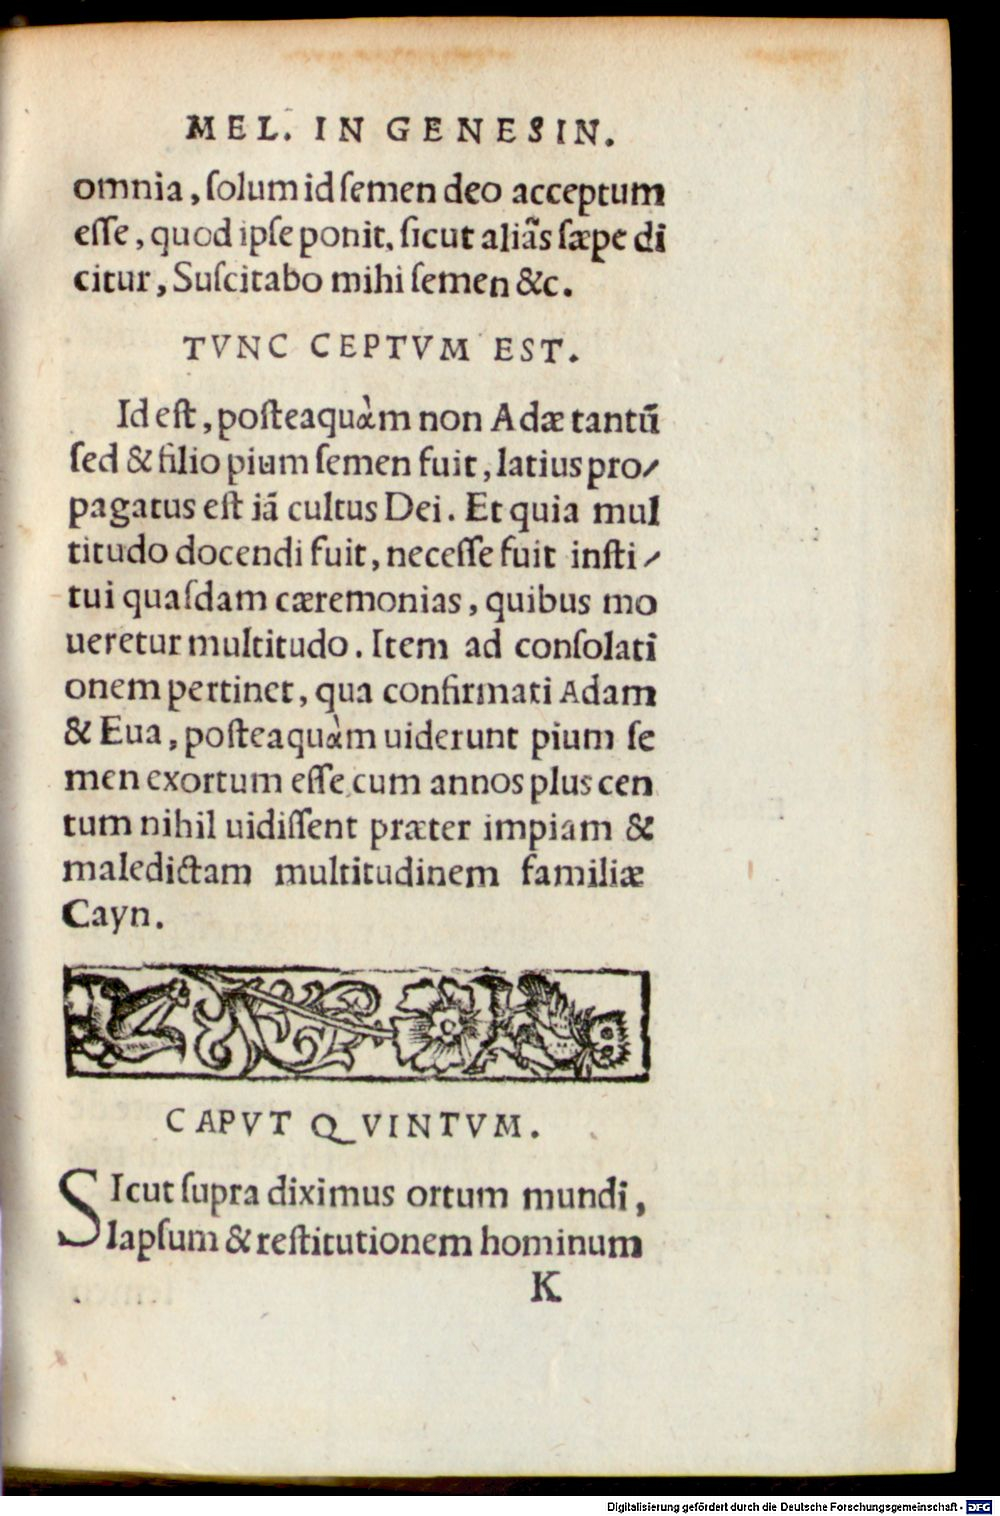 MEL. IN GENESIN.
omnia, ſolum id ſemen deo acceptum
eſſe, quod ipſe ponit, ſicut aliãs ſæpe di
citur, Suſcitabo mihi ſemen &c.
TVNC CEPTVM EST.
Id eſt, poſteaquàm non Adæ tantũ
ſed & filio pium ſemen fuit, latius pro⸗
pagatus eſt iã cultus Dei. Et quia mul
titudo docendi fuit, neceſſe fuit inſti⸗
tui quaſdam cæremonias, quibus mo
ueretur multitudo. Item ad conſolati
onem pertinet, qua confirmati Adam
& Eua, poſteaquàm uiderunt pium ſe
men exortum eſſe cum annos plus cen
tum nihil uidiſſent præter impiam &
maledictam multitudinem familiæ
Cayn.
CAPVT QVINTVM.
SIcut ſupra diximus ortum mundi,
lapſum & reſtitutionem hominum
K
Digitalisierung gefördert durch die Deutsche Forschungsgemeinschaft - DFG